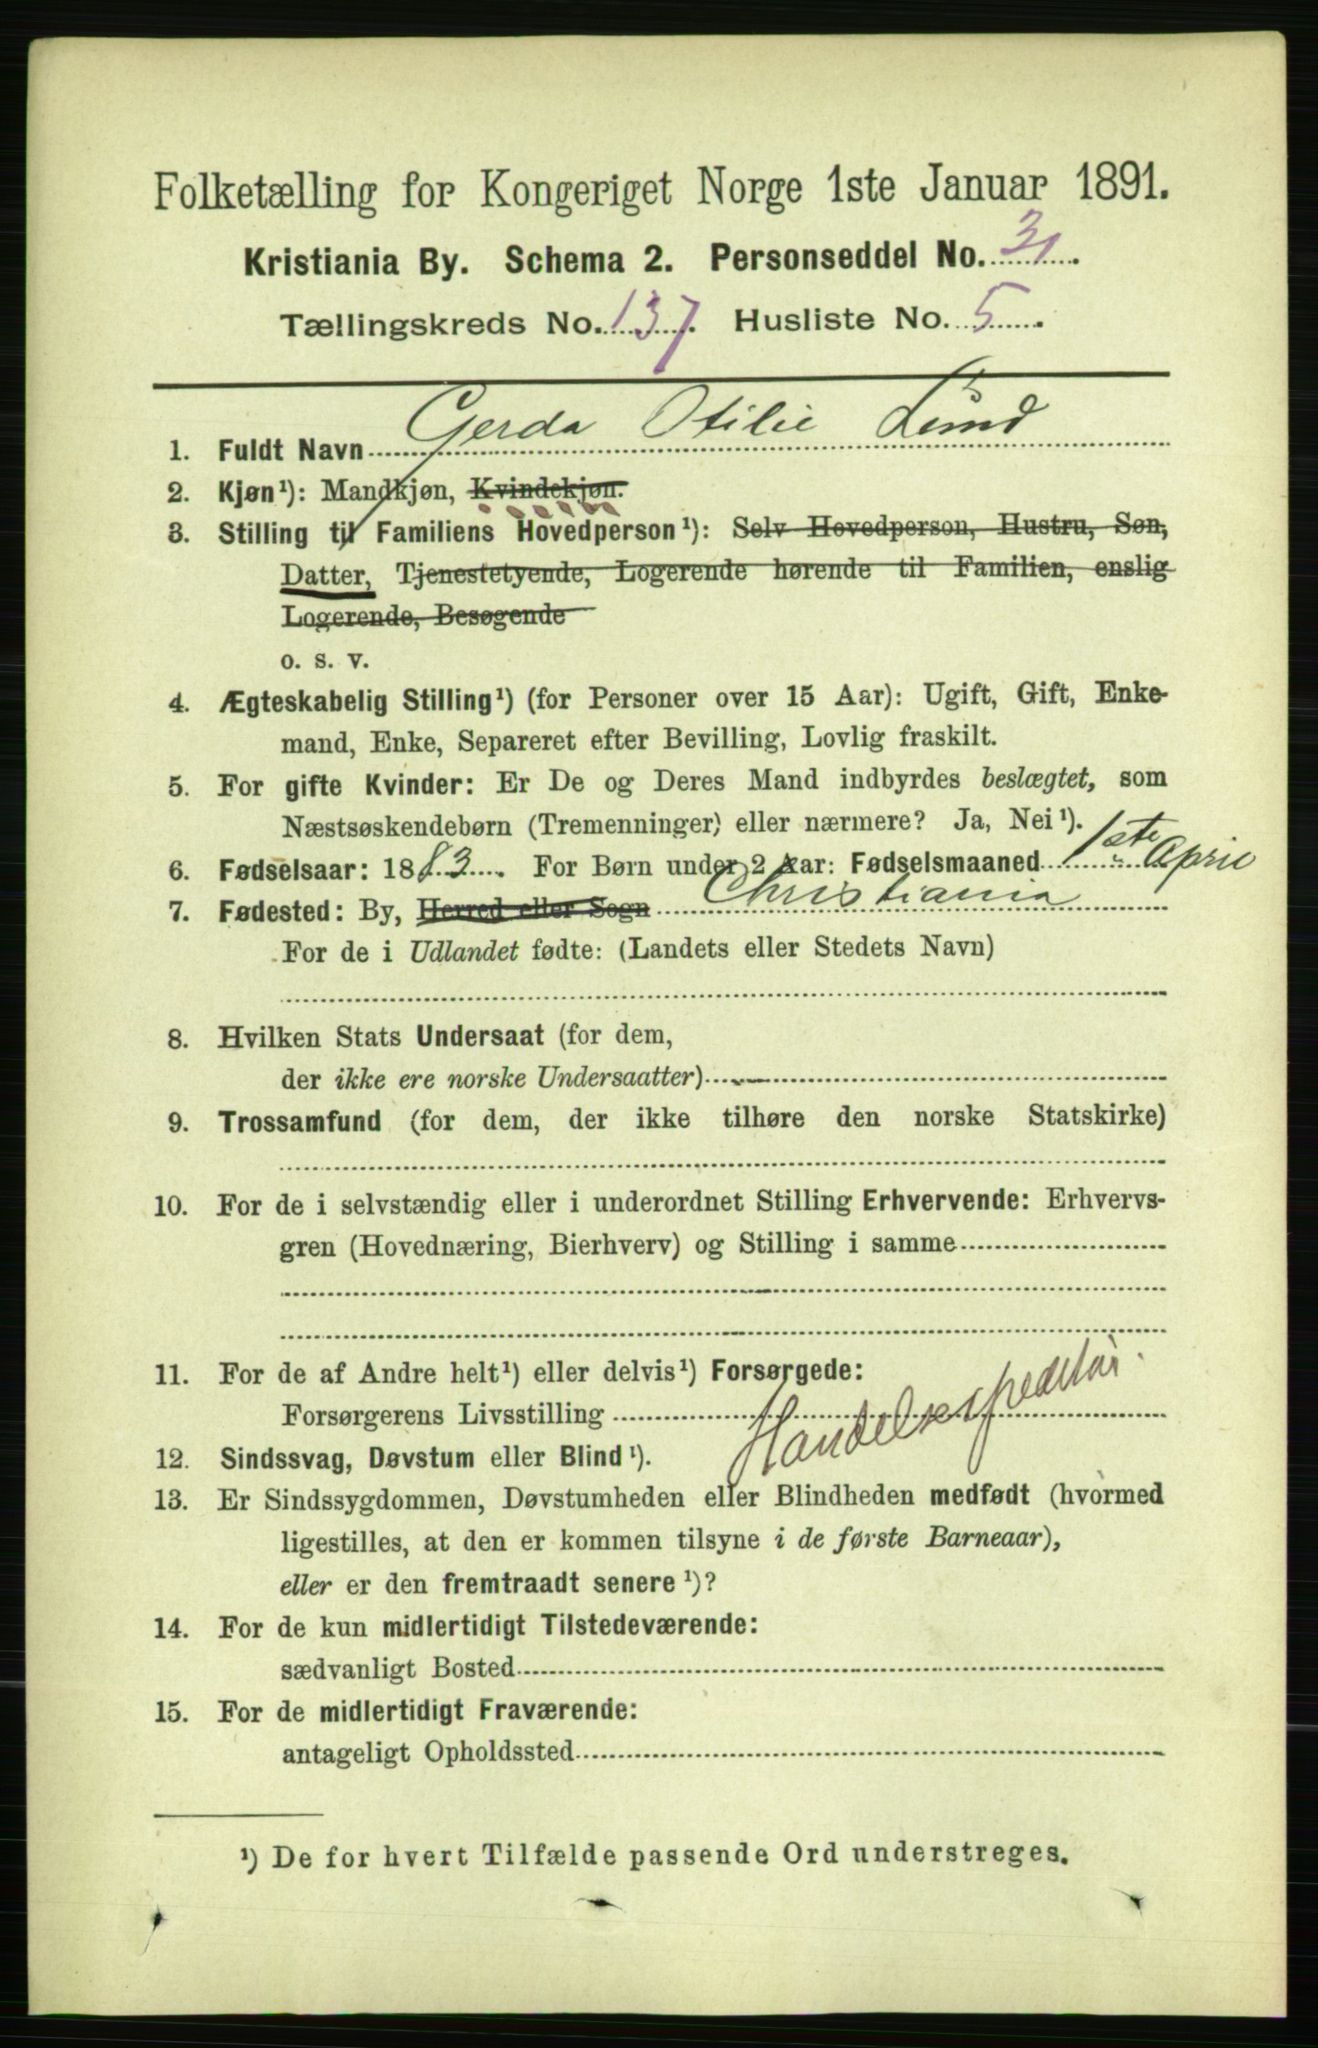 Folketælling for Kongeriget Norge 1ste Januar 1891.
Kristiania By. Schema 2. Personseddel No. 31.
Tællingskreds No. 137. Husliste No. 5.
1. Fuldt Navn Gerda Otilie Lund
2. Kjøn¹): Mandkjøn, Kvindekjøn.
3. Stilling til Familiens Hovedperson¹): Selv Hovedperson, Hustru, Søn,
Datter, Tjenestetyende, Logerende hørende til Familien, enslig
Logerende, Besøgende
o. s. v.
4. Ægteskabelig Stilling¹) (for Personer over 15 Aar): Ugift, Gift, Enke-
mand, Enke, Separeret efter Bevilling, Lovlig fraskilt.
5. For gifte Kvinder: Er De og Deres Mand indbyrdes beslægtet, som
Næstsøskendebørn (Tremenninger) eller nærmere? Ja, Nei¹).
6. Fødselsaar: 1883. For Børn under 2 Aar: Fødselsmaaned 1ste April
7. Fødested: By, Herred eller Sogn Christiania
For de i Udlandet fødte: (Landets eller Stedets Navn)
8. Hvilken Stats Undersaat (for dem,
der ikke ere norske Undersaatter)
9. Trossamfund (for dem, der ikke tilhøre den norske Statskirke)
10. For de i selvstændig eller i underordnet Stilling Erhvervende: Erhvervs-
gren (Hovednæring, Bierhverv) og Stilling i samme
11. For de af Andre helt¹) eller delvis¹) Forsørgede:
Forsørgerens Livsstilling Handelsexpeditør.
12. Sindssvag, Døvstum eller Blind¹).
13. Er Sindssygdommen, Døvstumheden eller Blindheden medfødt (hvormed
ligestilles, at den er kommen tilsyne i de første Barneaar),
eller er den fremtraadt senere¹)?
14. For de kun midlertidigt Tilstedeværende:
sædvanligt Bosted
15. For de midlertidigt Fraværende:
antageligt Opholdssted
¹) De for hvert Tilfælde passende Ord understreges.